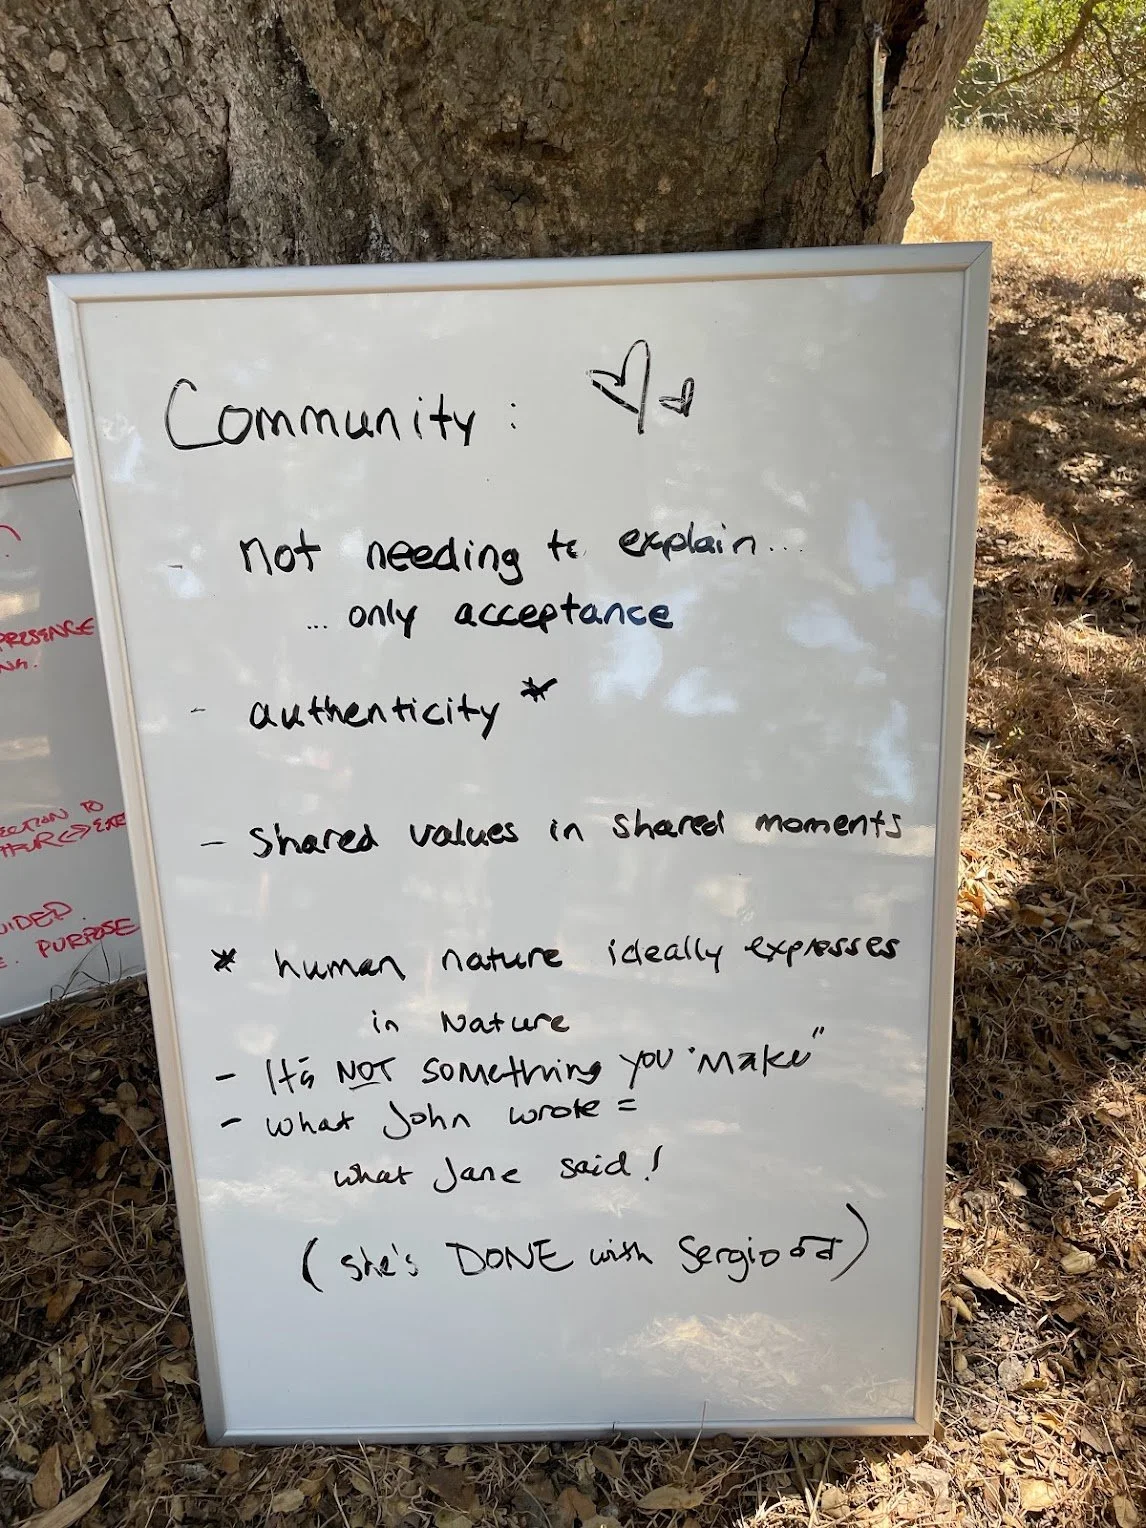 Community :
- not needing to explain...
... only acceptance
- authenticity *
- Shared values in shared moments
* human nature ideally expresses
in Nature
- It's NOT something you "make"
- what John wrote =
what Jane said!
(she's DONE with Sergio)
PRESENCE
TO
PURPOSE